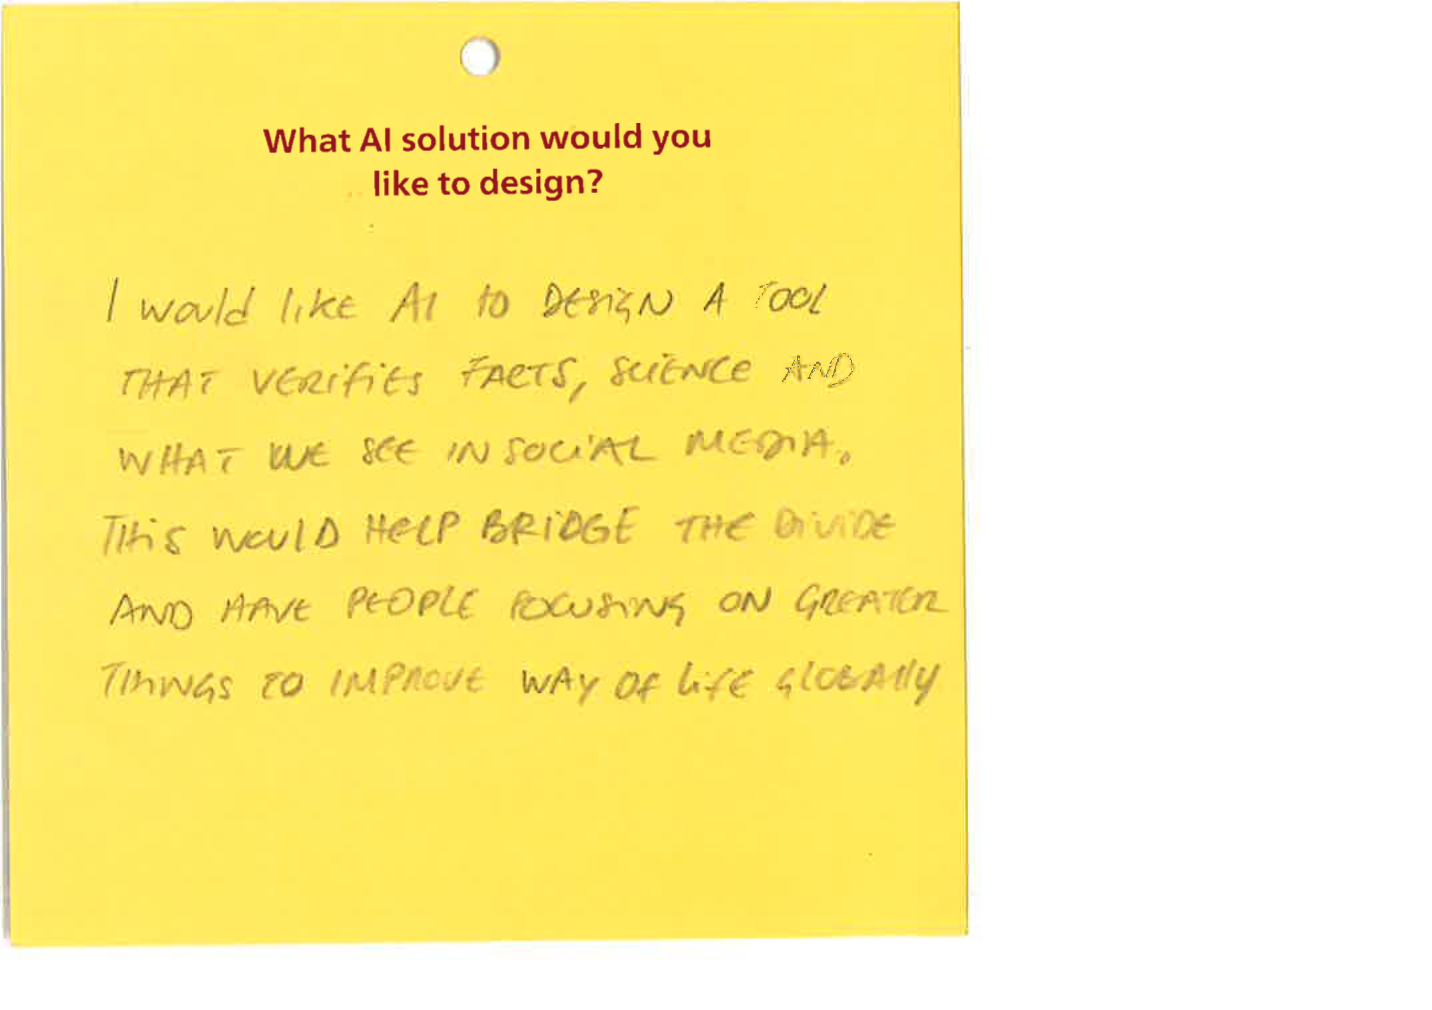 What AI solution would you
like to design?
I would like AI to DESIGN A TOOL
THAT VERIFIES FACTS, SCIENCE AND
WHAT WE SEE IN SOCIAL MEDIA.
THIS WOULD HELP BRIDGE THE DIVIDE
AND HAVE PEOPLE FOCUSING ON GREATER
THINGS TO IMPROVE WAY OF LIFE GLOBALLY